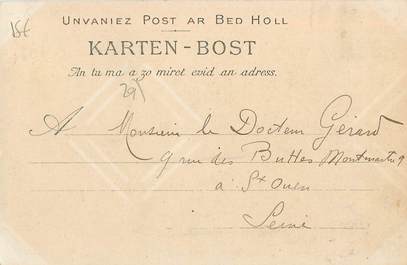 15€
UNVANIEZ POST AR BED HOLL
KARTEN-BOST
An tu ma a zo miret evid an adress.
29
A Monsieur le Docteur Gérard
9 rue des Buttes Montmartre 9
à St Ouen
Seine